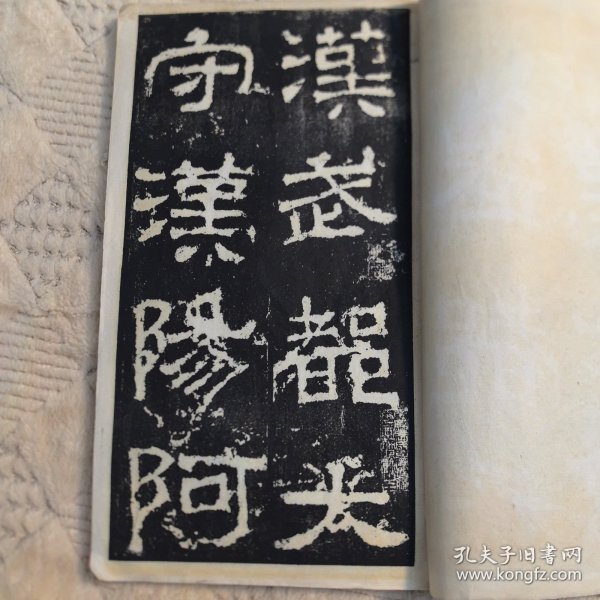 漢武都太
守漢陽阿
孔夫子旧書网
www.kongfz.com